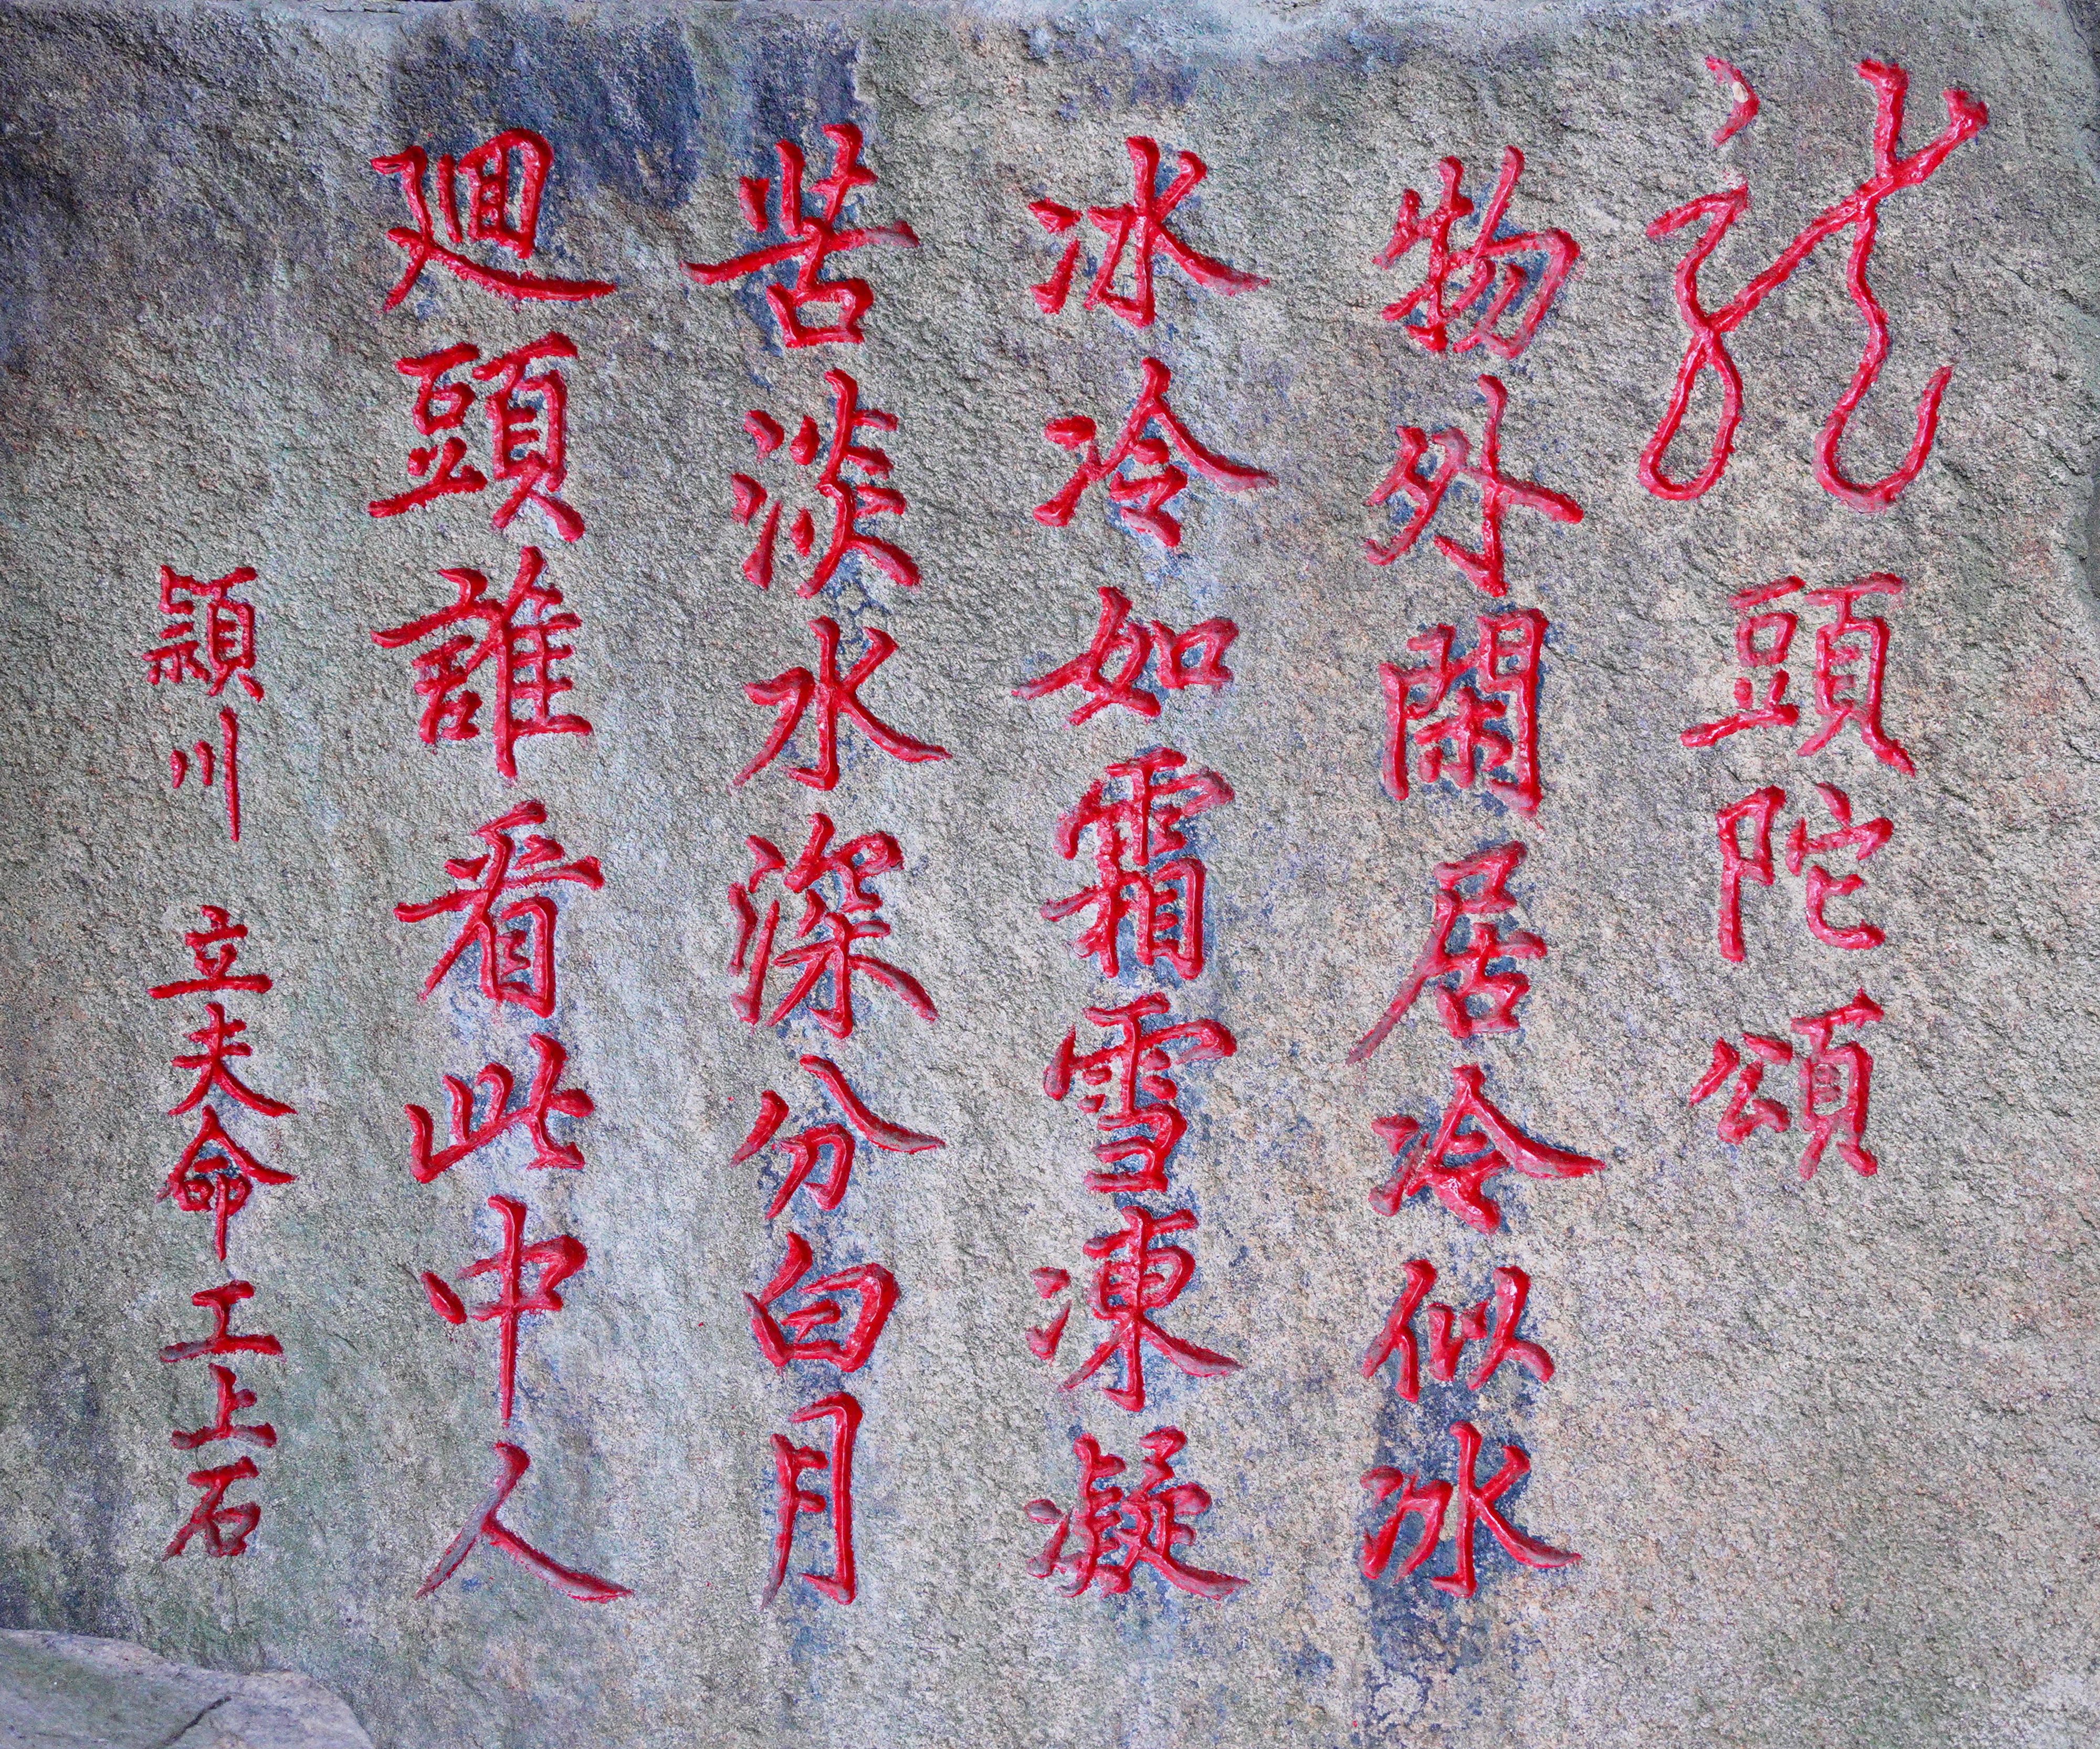 龍頭陀頌
物外閑居冷似冰
冰冷如霜雪凍凝
苦淡水深分白月
迴頭誰看此中人
潁川 立夫命工上石